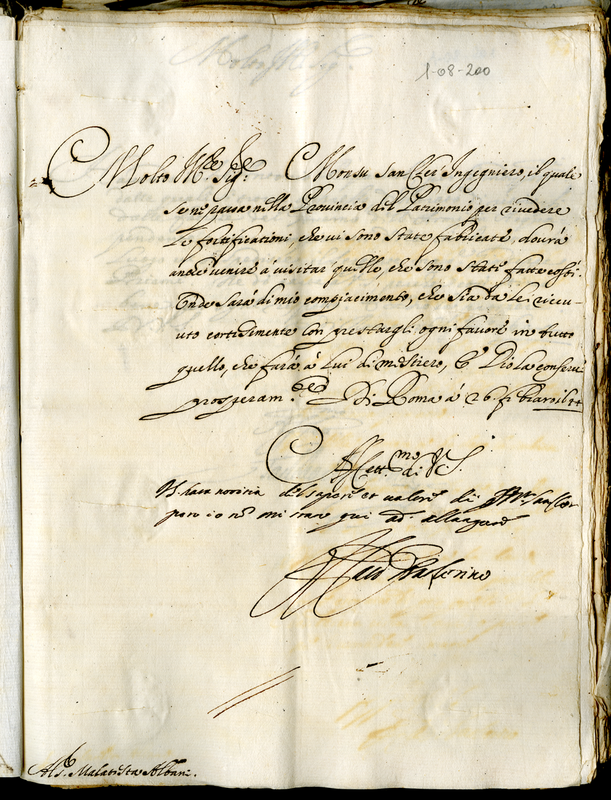 1-08-200
Molto Ill.re Sig.re Monsu San Cler Ingegniero, il quale
se ne passa nella Provincia del Patrimonio per rivedere
le fortificationi, che vi sono state fabricate, dourà
anche venire à visitar quelle, che sono state fatte costì.
Onde sarà di mio compiacimento, che sia da lei riceu-
uto cortesimente con prestargli ogni favore in tutto
quello, che farà à lui di mestiero, E Dio la conservi
prosperam.te Di Roma à 26. febraro
Aff.mo di V.S.
V.S. hara notitia del sapere et valore di
pero io non mi starò qui ad allungare
Al S. Malatesta Albani.